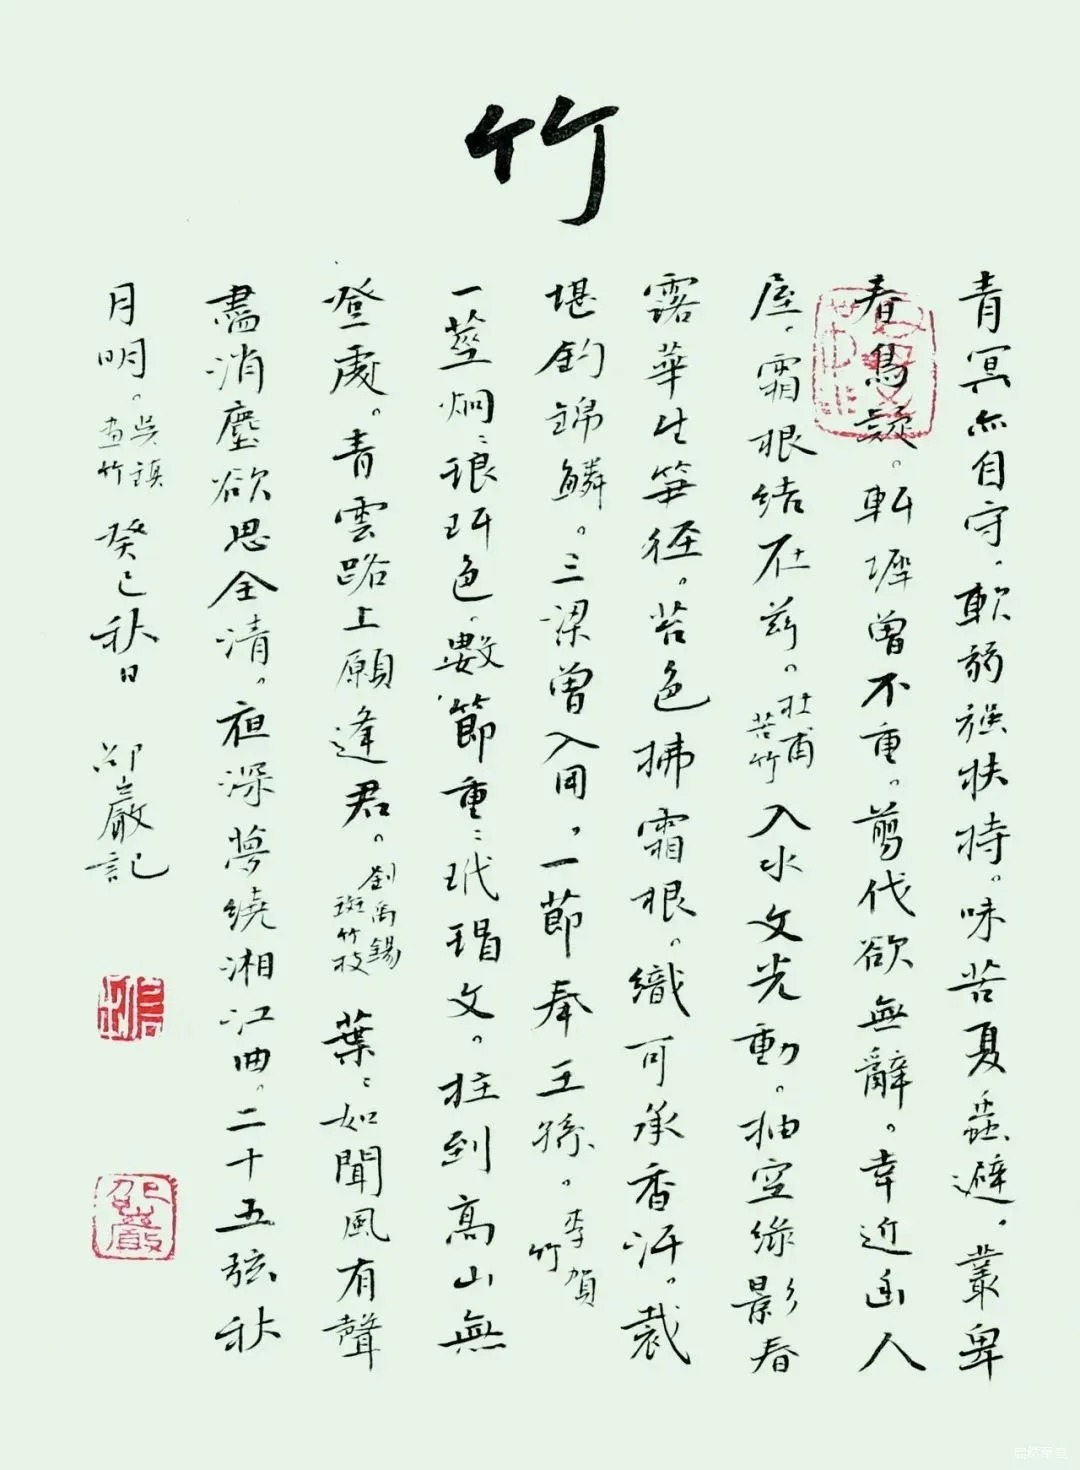 竹
青冥亦自守，軟弱強扶持。味苦夏蟲避，叢卑
春鳥疑。軒墀曾不重。翦伐欲無辭。幸近幽人
屋，霜根結在茲。杜甫苦竹 入水文光動。抽空緑影春
露華生筍徑。苔色拂霜根。織可承香汗。裁
堪釣錦鱗。三梁曾入用，一節奉王孫。李賀竹
一莖炯〻琅玕色。數節重〻玳瑁文。拄到高山無
登處。青雲路上願逢君。劉禹錫斑竹杖 葉〻如聞風有聲
盡消塵欲思全清。夜深夢繞湘江曲。二十五弦秋
月明。吳鎮畫竹 癸巳秋日 邵巖記
邵巖